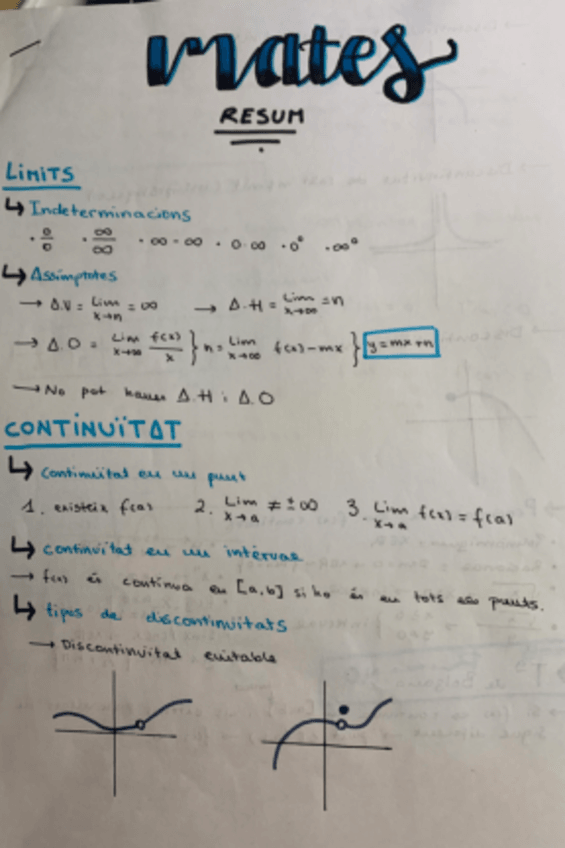 mates
RESUM
LIMITS
↳ Indeterminacions
· 0/0 · ∞/∞ · ∞-∞ · 0·∞ · 0⁰ · ∞⁰
↳ Assímptotes
→ A.V = Lim x→n = ∞ → A.H = Lim x→∞ = n
→ A.O = Lim x→∞ f(x)/x } n = Lim x→∞ f(x)-mx } y=mx+n
→ No pot haver A.H i A.O
CONTINUÏTAT
↳ continuïtat en un punt
1. existeix f(a) 2. Lim x→a ≠ ±∞ 3. Lim x→a f(x) = f(a)
↳ continuïtat en un interval
→ f(x) és contínua en [a,b] si ho és en tots els punts.
↳ tipos de discontinuïtats
→ Discontinuïtat evitable